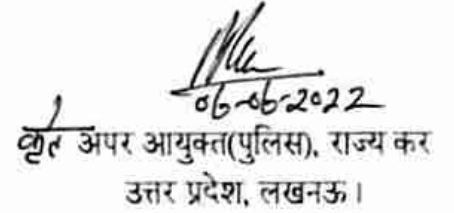 06-06-2022
कृते अपर आयुक्त(पुलिस), राज्य कर
उत्तर प्रदेश, लखनऊ।